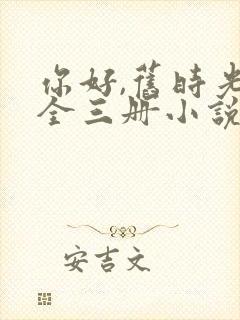 你好,舊時光
全三册小說
安吉文